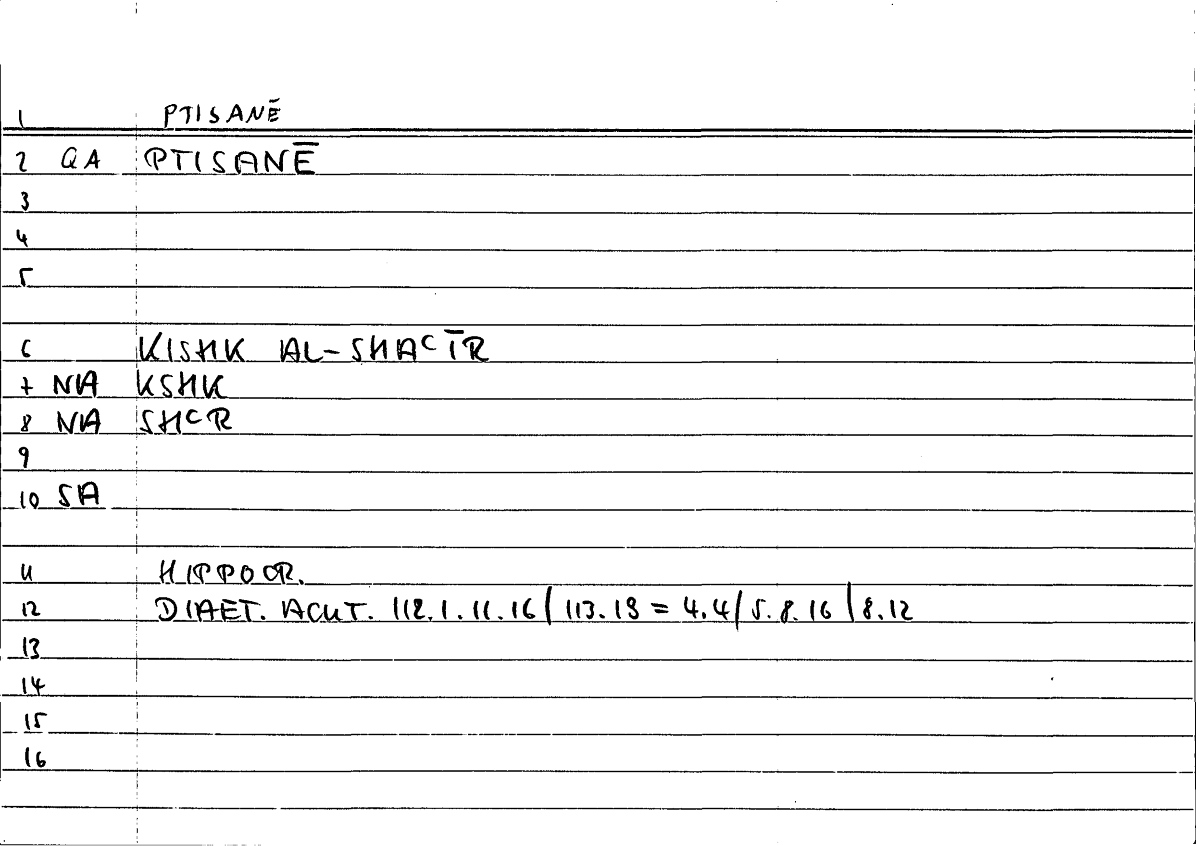 1 PTISANĒ
2 QA PTISANĒ
3
4
5
6 KISHK AL-SHAꜤĪR
7 NA KSHK
8 NA SHꜤR
9
10 SA
11 HIPPOCR.
12 DIAET. ACUT. 112.1.11.16/113.18 = 4.4/5.8.16/8.12
13
14
15
16